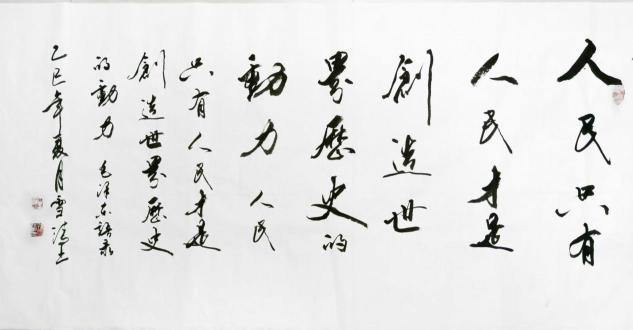 人民只有
人民才是
創造世
界歷史的
動力 人民
只有人民才是
創造世界歷史
的動力 毛泽东語录
乙巳年夏月雪